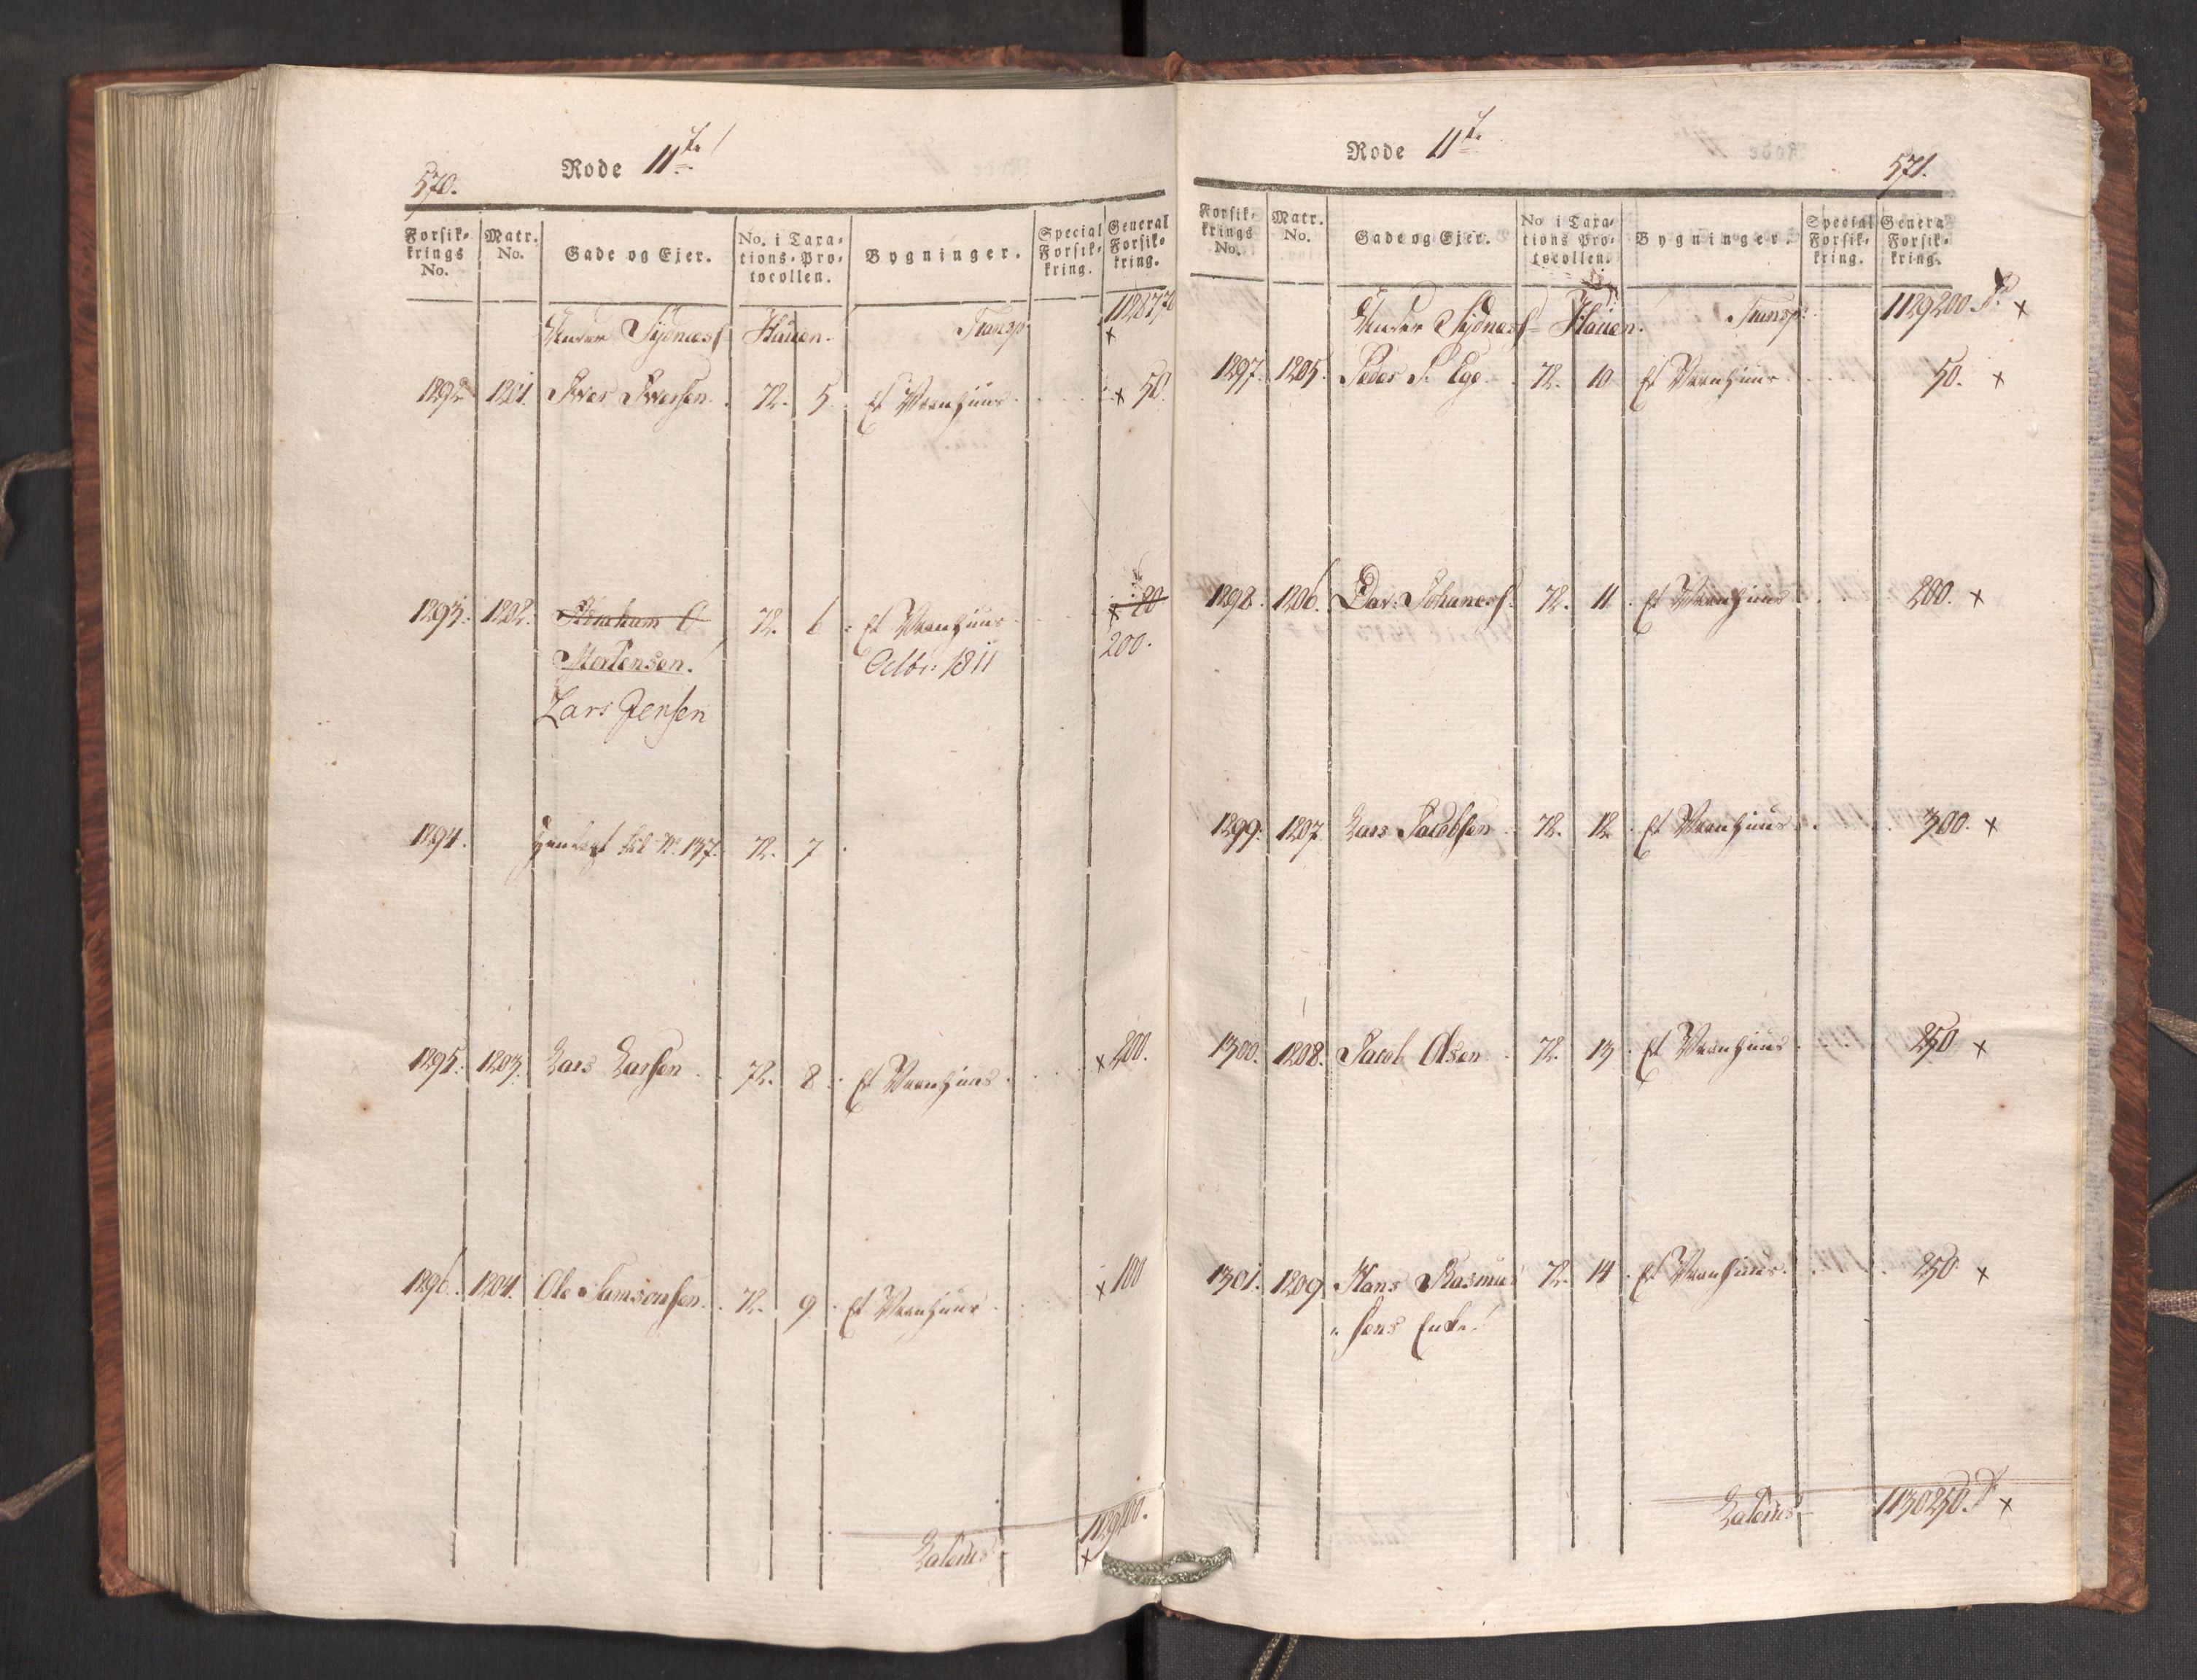 570.
Rode 11te
Forsikrings No. Matr. No. Gade og Ejer. No. i Taxations-Protocollen. Bygninger. Special Forsikring. General Forsikring.
Under Sydness Hauen. Transp.
x
1292 1201. Iver Iversen. 72. 5. Et Vaanhuus x 50.
1293. 1202. Abraham O 72. 6 Et Vaanhuus x 80
Mortensen. Octbr: 1811 200.
Lars Jensen
1294. Henlagt til No. 137. 72. 7
1295. 1203. Lars Larsen 72. 8. Et Vaanhuus x 200.
1296. 1204. Ole Samsonsen. 72. 9. Et Vaanhuus x 100
Lateris 1129200.
x
Rode 11te
571.
Forsikrings No. Matr. No. Gade og Ejer. No i Taxations Protocollen. Bygninger. Special Forsikring. General Forsikring.
Under Sydness Hauen. Transp. 1129200. x
1297. 1205. Peder P. Ege. 72. 10 Et Vaanhuus 50. x
1298. 1206. Dav. Johaness. 72. 11. Et Vaanhuus 200. x
1299. 1207. Lars Jacobsen 72. 12. Et Vaanhuus 300. x
1300. 1208. Jacob Olsen 72. 13. Et Vaanhuus 250 x
1301. 1209 Hans Rasmus 72. 14. Et Vaanhuus 250. x
sens Enke
Lateris 1130250. x